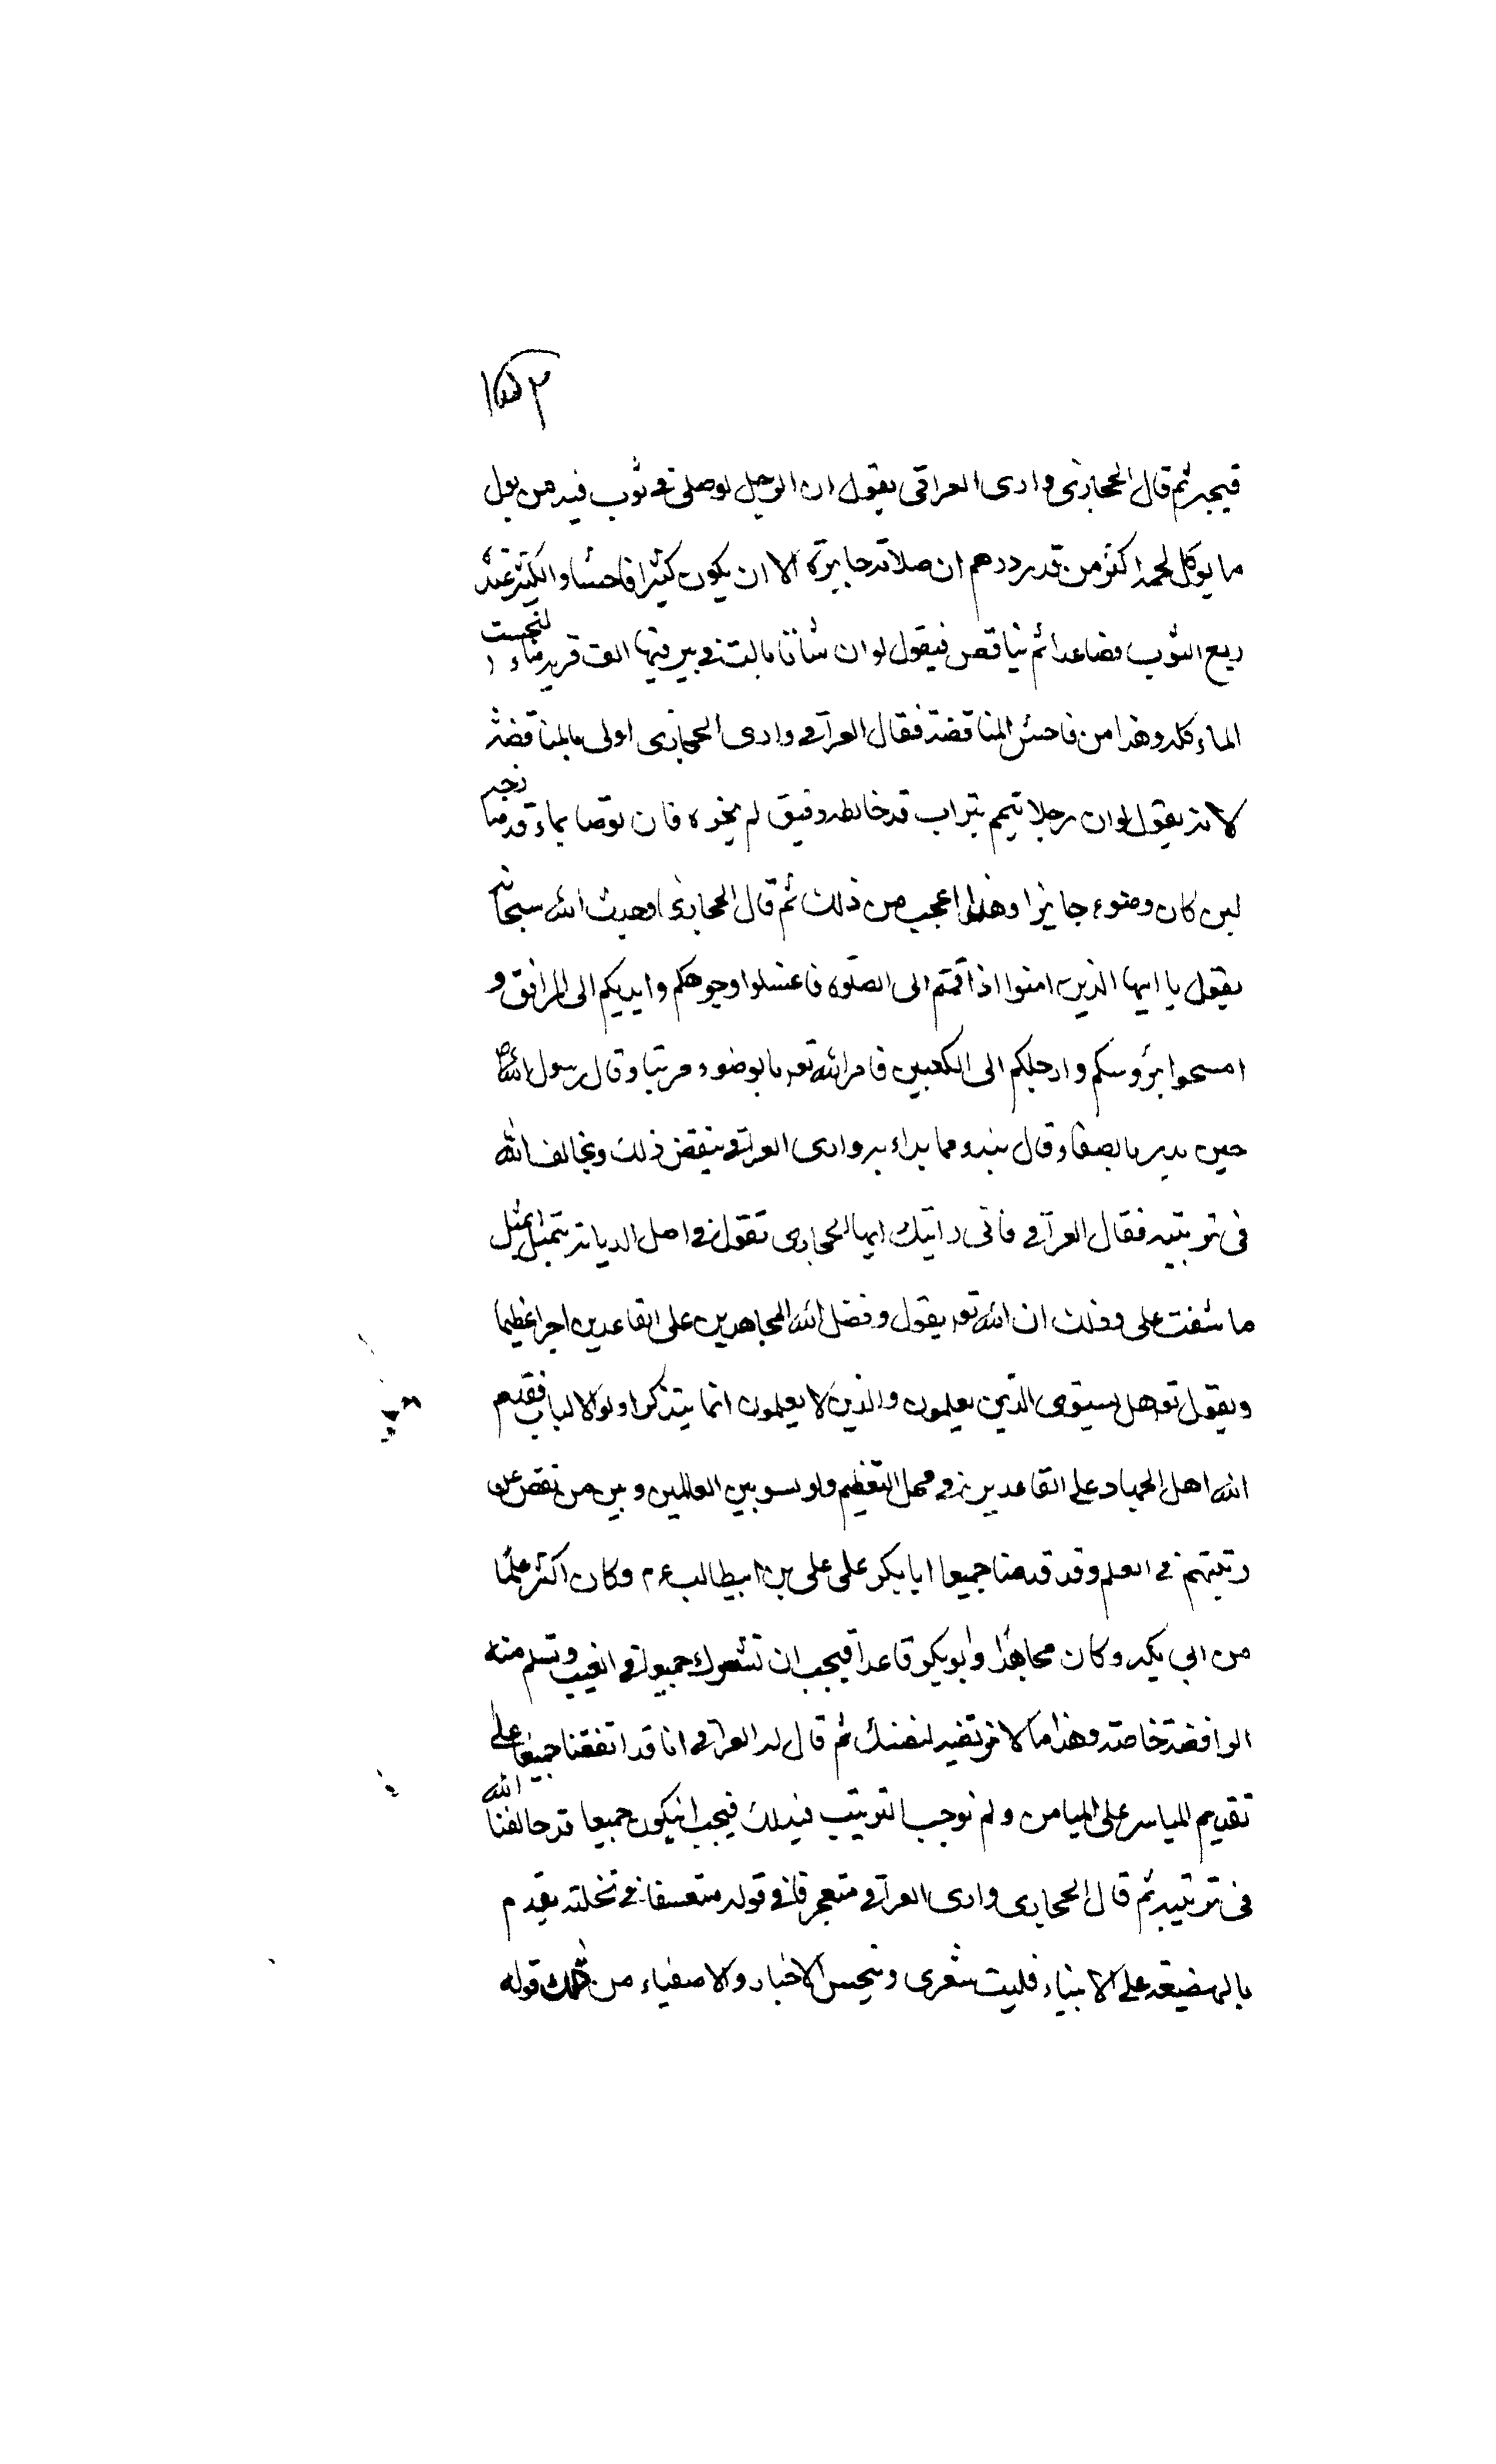 قبيحه ثم قال الحجازى وارى العراقى يقول ان الرجل لو صلى فى ثوب فيه من بول
ما يوكل لحمه اكثر من قدر درهم ان صلاته جايزة الا ان يكون كثيرا فاحشا والكثير عنده
ربع الثوب فصاعدا ثم يناقض فيقول لو ان شاتا بالت فى بير فيها الف قربة ماء لنجست
الماء كله وهذا من فاحش المناقضة فقال العراقى وارى الحجازى اولى بالمناقضة
لانه يقول لو ان رجلا تيمم بتراب قد خالطه دقيق لم يجزه فان توضا بماء قد مازجه
لبن كان وضوءه جايزا وهذا اعجب من ذلك ثم قال الحجازى اوحيث الله سبحانه
يقول يا ايها الذين امنوا اذا قمتم الى الصلوة فاغسلوا وجوهكم وايديكم الى المرافق و
امسحوا برؤسكم وارجلكم الى الكعبين فامر الله تع بالوضوء مرتبا وقال رسول الله ص
حين بدء بالصفا وقال نبدء مما بداء به وارى العراقى ينقض ذلك ويخالف الله
فى ترتيبه فقال العراقى فانى رايتك ايها الحجازى تقول فى اصل الديانة بمثل
ما شنعت على وذلك ان الله تع يقول وفضل الله المجاهدين على القاعدين اجرا عظيما
ويقول تع هل يستوى الذين يعلمون والذين لا يعلمون انما يتذكر اولو الالباب فقدم
الله اهل الجهاد على القاعدين فى محل التعظيم ولم يسو بين العالمين وبين من نقص عن
رتبتهم فى العلم وقد قدمنا جميعا ابا بكر على على بن ابيطالب ع م وكان اكثر علما
من ابى بكر وكان مجاهدا وابو بكر قاعدا فيجب ان نشترك جميعا فى العيب وتسلم منه
الرافضة خاصة وهذا ما لا ترتضيه لنفسك ثم قال له العراقى انا قد اتفقنا جميعا على
تقديم المياسر على الميامن ولم نوجب الترتيب فى ذلك فيجب ان يكون جميعا قد خالفنا الله
فى ترتيبه ثم قال الحجازى وارى العراقى متعجرفا فى قوله متعسفا فى نحلته يقدم
على الانبياء فليت شعرى وينجس الاخيار والاصفياء من قوله